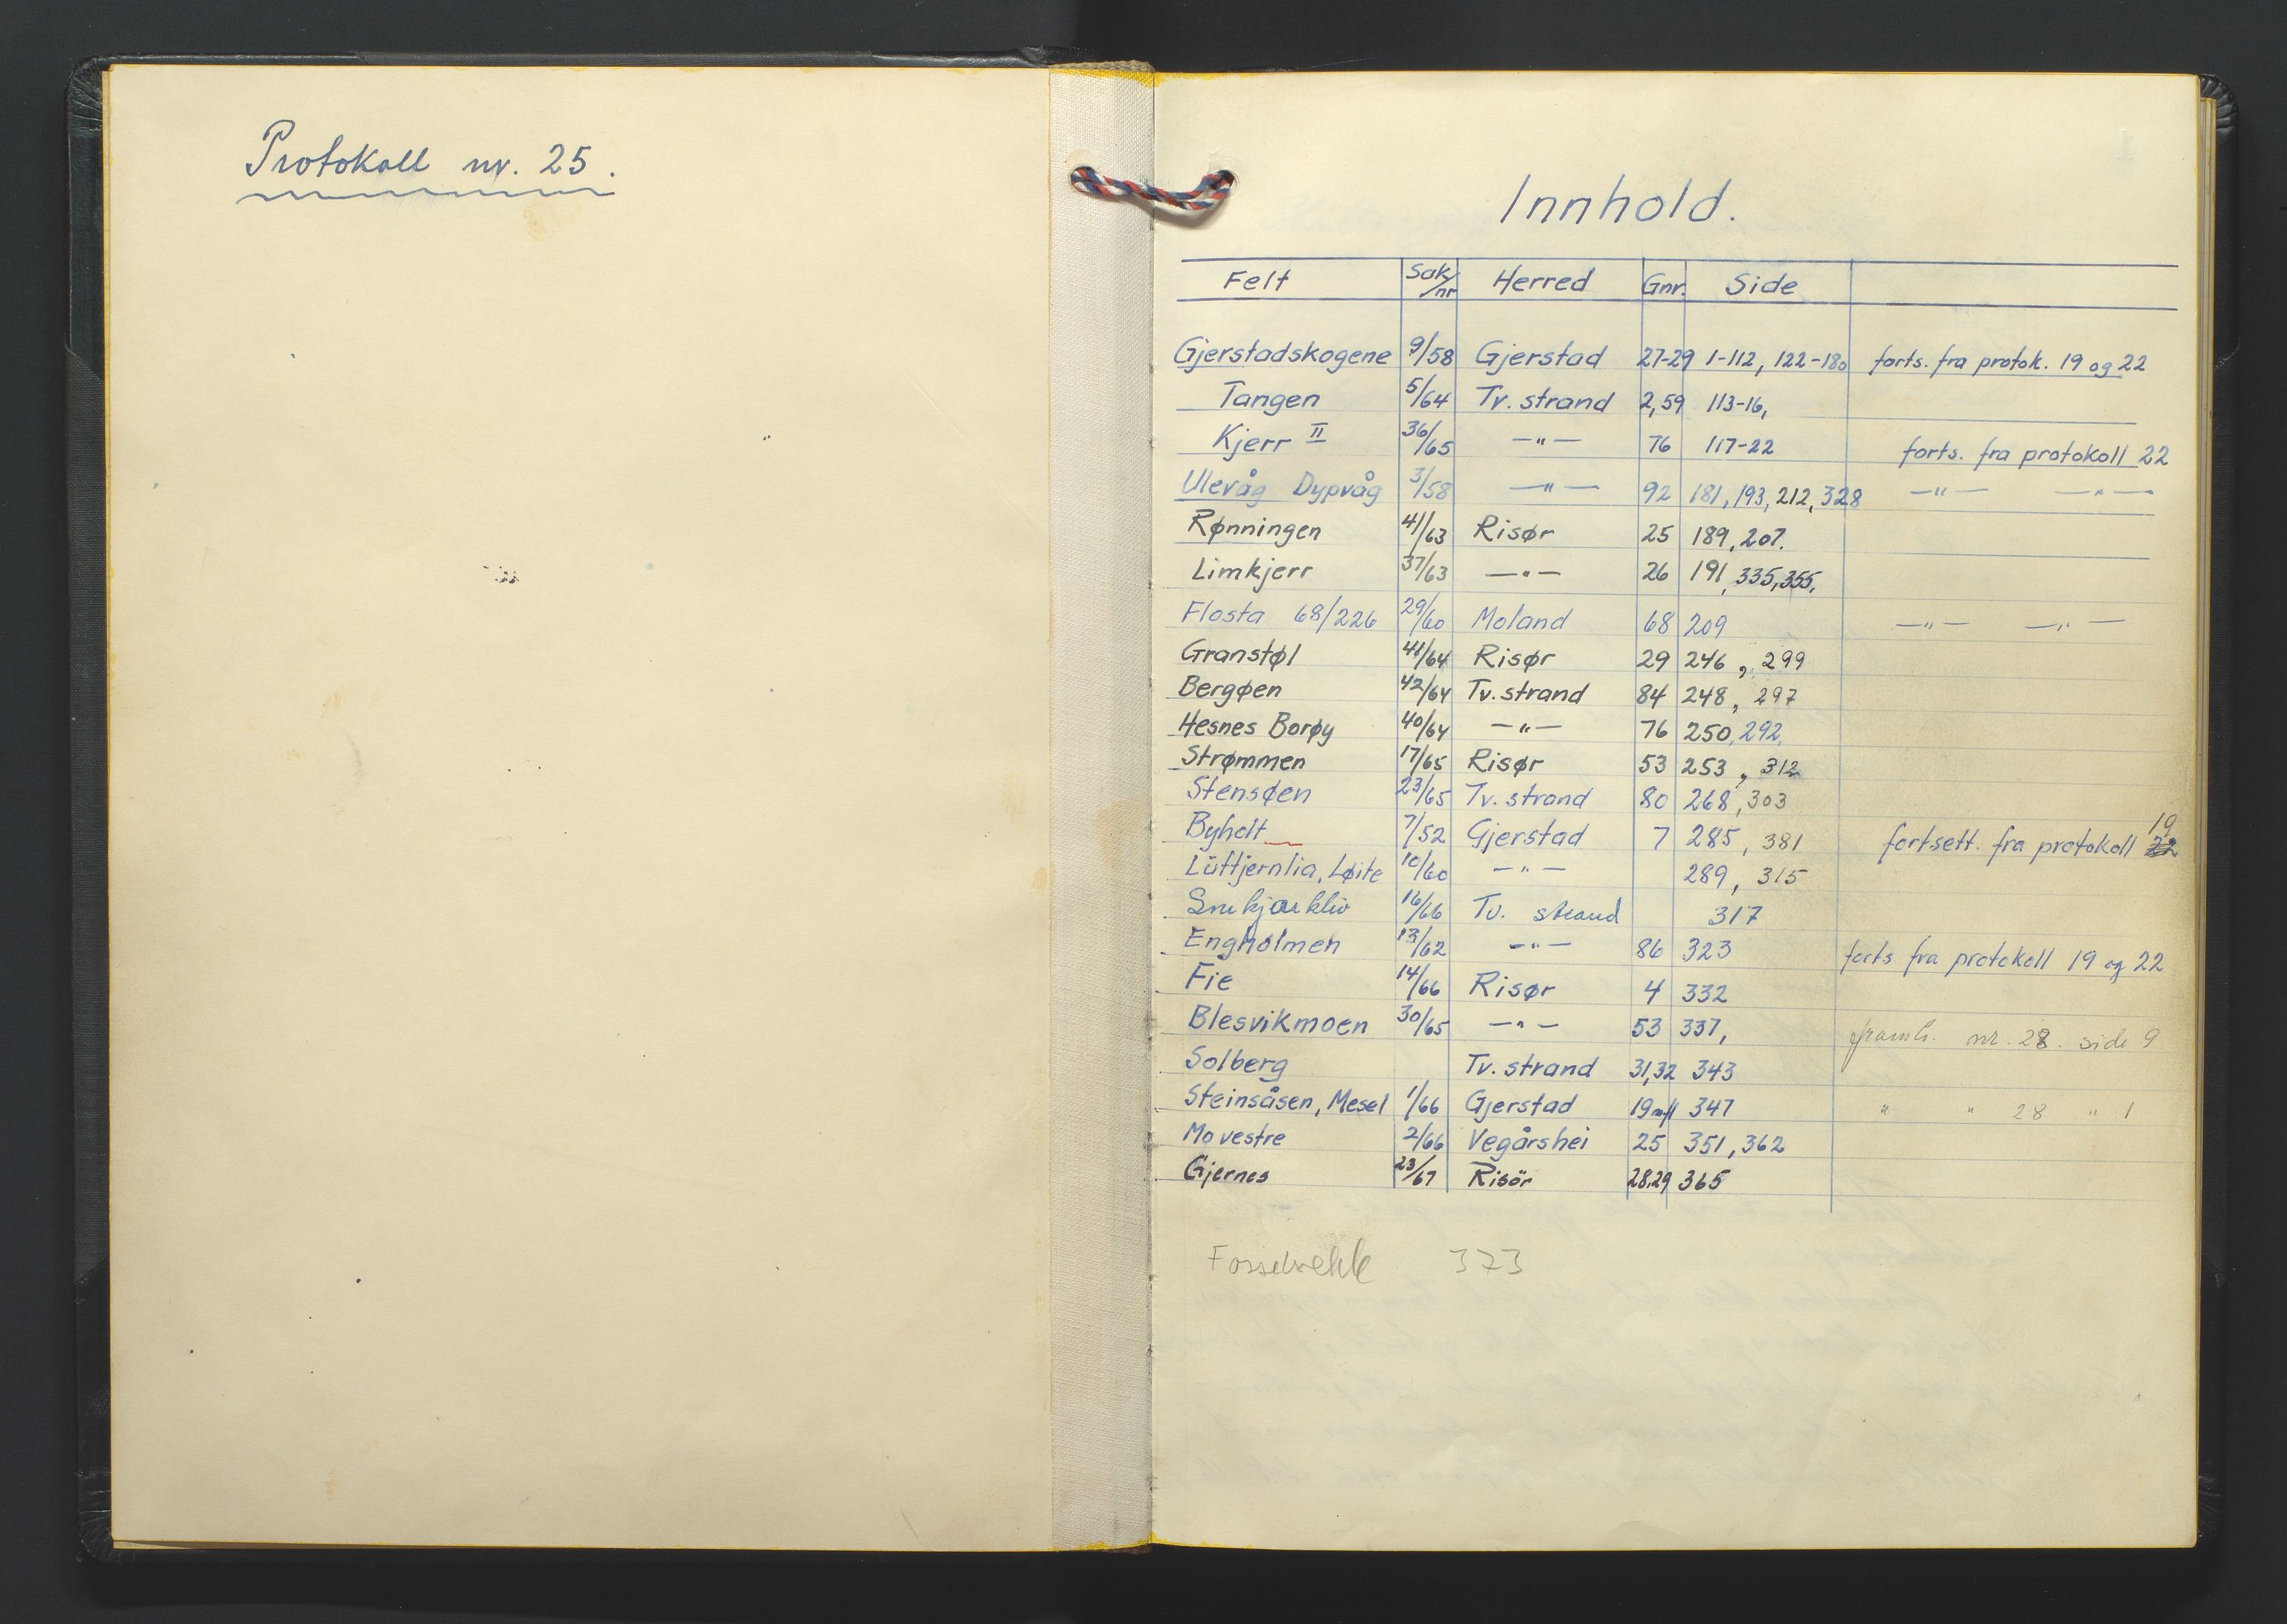 Protokoll nr. 25.
Innhold.
Felt Sak/nr Herred Gnr. Side
Gjerstadskogene 9/58 Gjerstad 27-29 1-112, 122-180 forts. fra protok. 19 og 22
Tangen 5/64 Tv. strand 2,59 113-16,
Kjerr II 36/65 —"— 76 117-22 forts. fra protokoll 22
Ulevåg Dypvåg 3/58 —"— 92 181, 193, 212, 328 —"— —"—
Rønningen 41/63 Risør 25 189, 207.
Limkjerr 37/63 —"— 26 191, 335, 355,
Flosta 68/226 29/60 Moland 68 209 —"— —"—
Granstøl 41/64 Risør 29 246, 299
Bergøen 42/64 Tv. strand 84 248, 297
Hesnes Borøy 40/64 —"— 76 250, 292,
Strømmen 17/65 Risør 53 253, 312
Stensøen 23/65 Tv. strand 80 268, 303
Byholt 7/52 Gjerstad 7 285, 381 fortsett. fra protokoll 19 22
Lüttjernlia, Løite 10/60 —"— 289, 315
16/66 Tv. strand 317
Engholmen 13/62 —"— 86 323 forts fra protokoll 19 og 22
Fie 14/66 Risør 4 332
Blesvikmoen 30/65 —"— 53 337, framh. nr. 28. side 9
Solberg Tv. strand 31,32 343
Steinsåsen, Mesel 1/66 Gjerstad 19 mfl 347 " " 28 " 1
Mo vestre 2/66 Vegårshei 25 351, 362
Gjernes 23/67 Risör 28,29 365
373